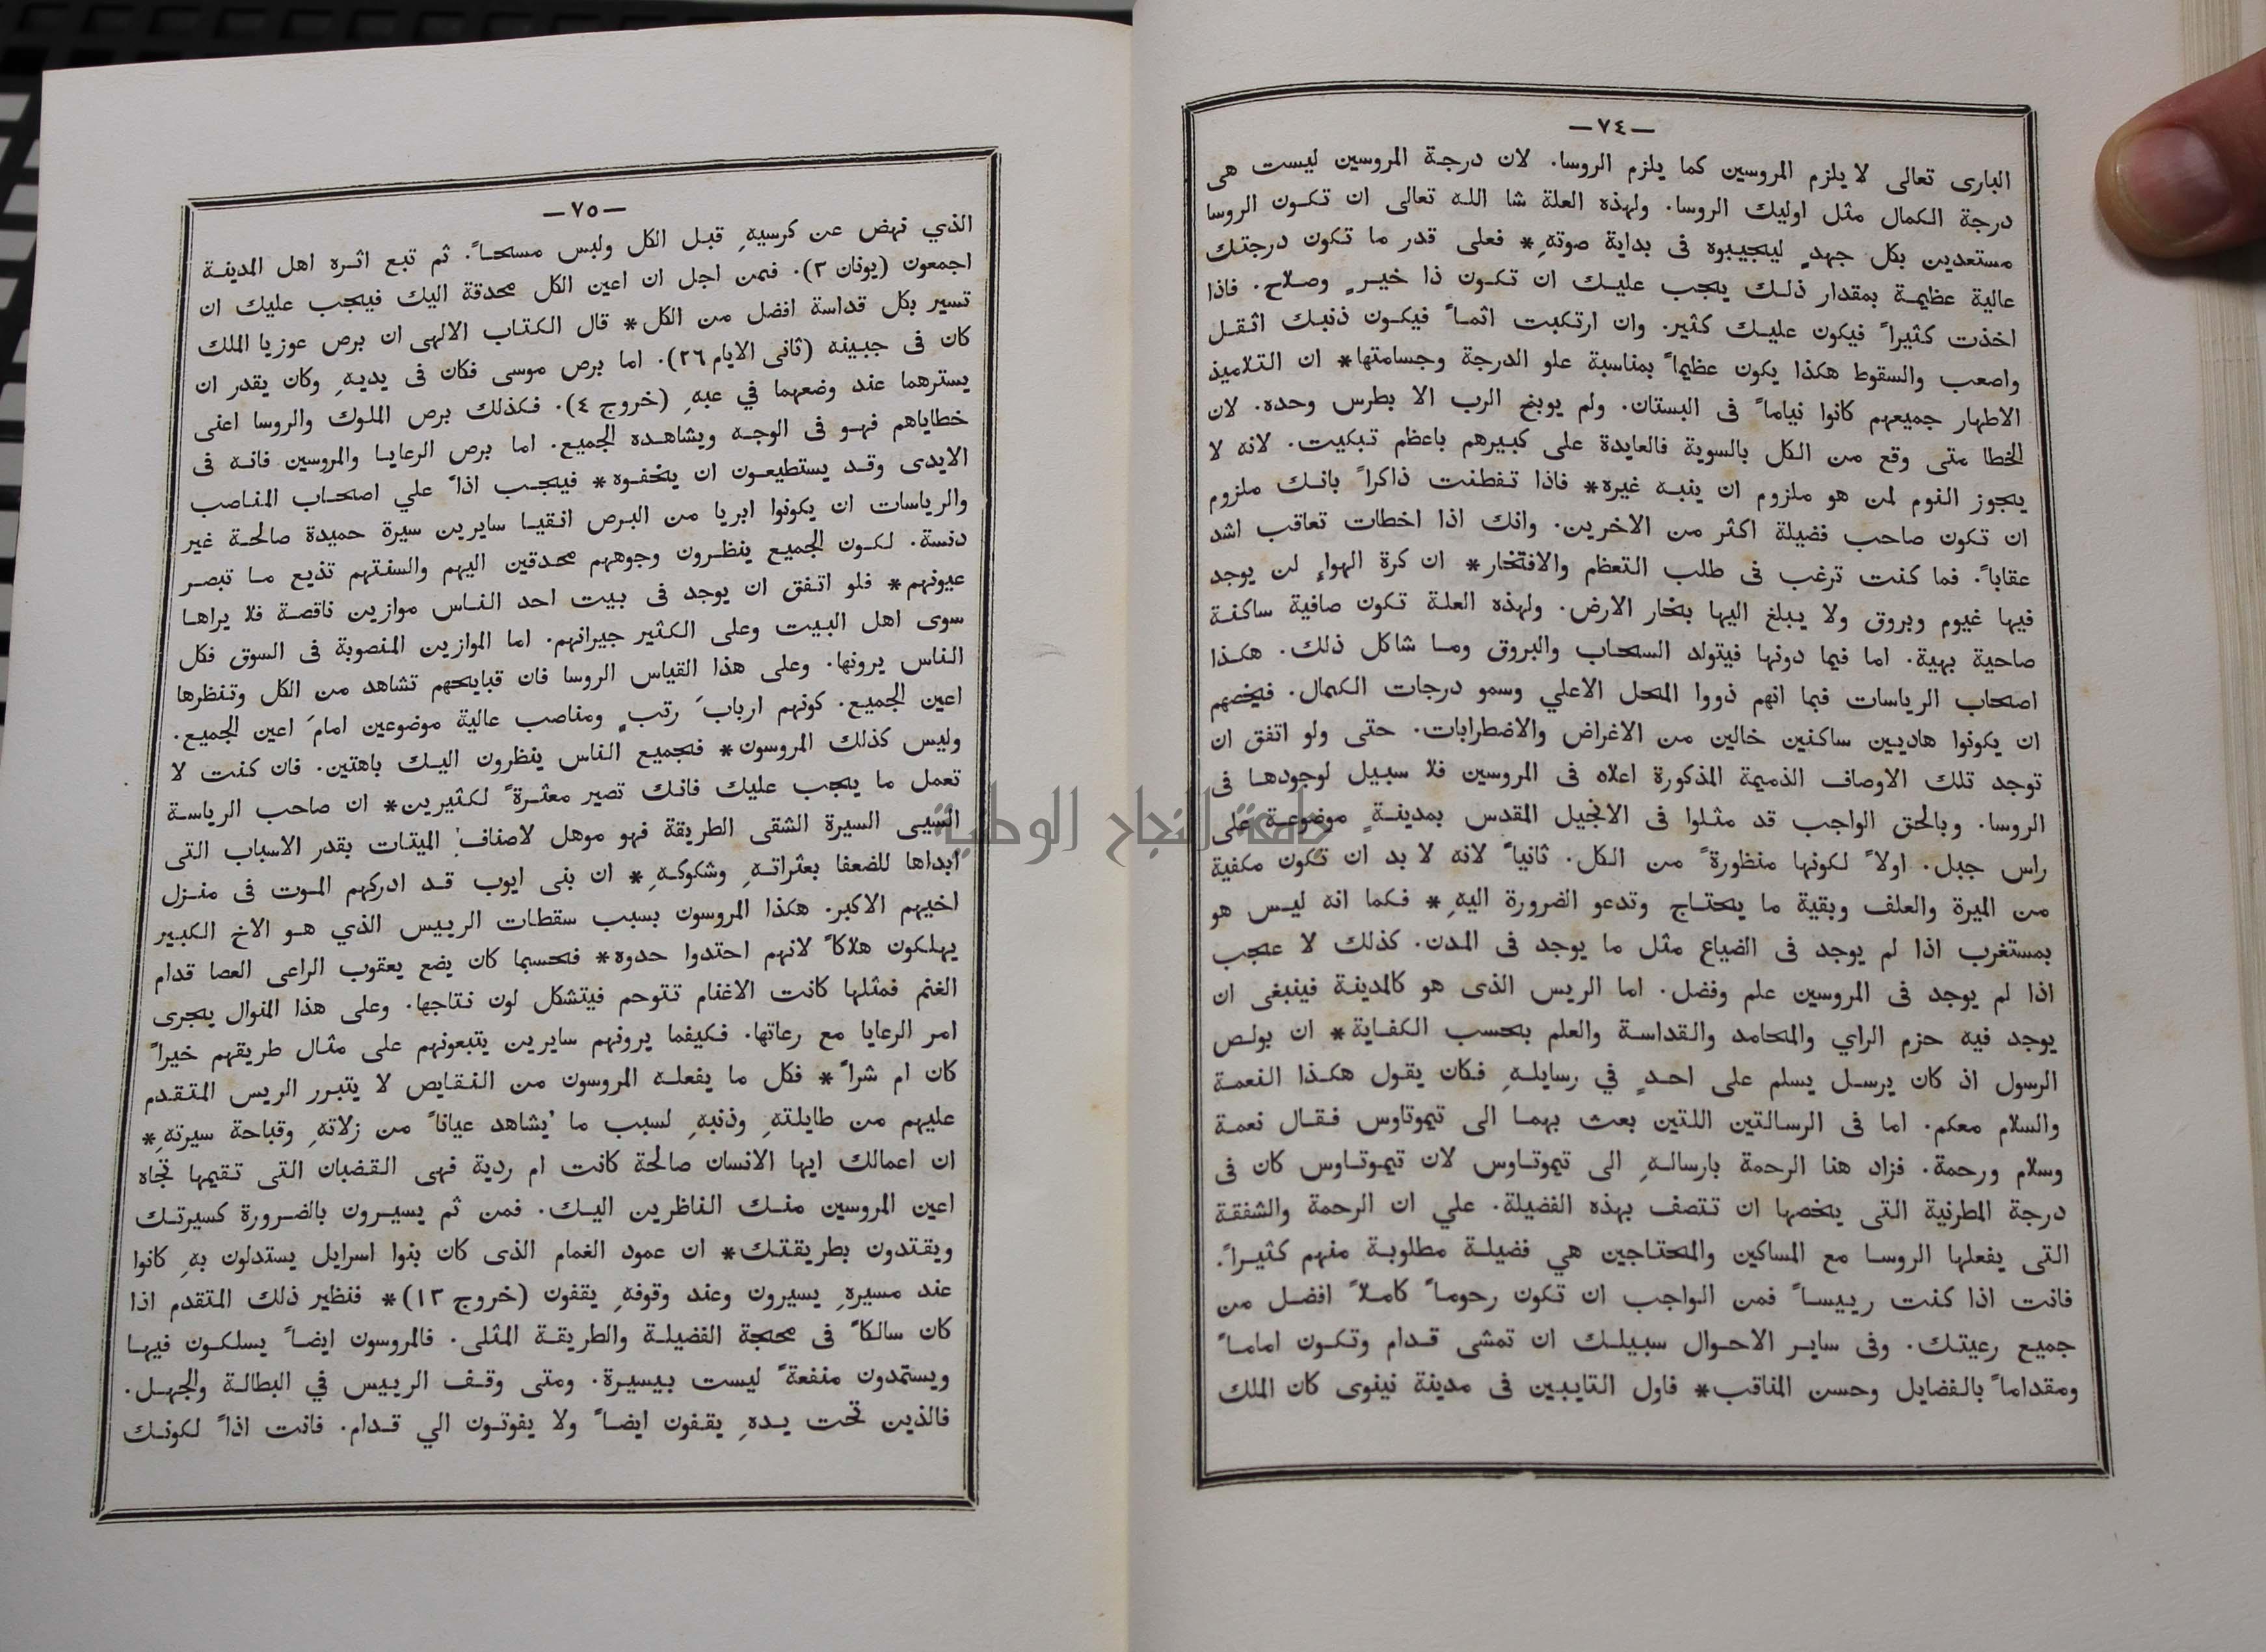 —٧٤—
البارى تعالى لا يلزم المروسين كما يلزم الروسا. لان درجة المروسين ليست هى
درجة الكمال مثل اوليك الروسا. ولهذه العلة شا الله تعالى ان تكون الروسا
مستعدين بكل جهدٍ ليجيبوه فى بداية صوتهِ* فعلى قدر ما تكون درجتك
عالية عظيمة بمقدار ذلك يجب عليك ان تكون ذا خيرٍ وصلاح. فاذا
اخذت كثيراً فيكون عليك كثير. وان ارتكبت اثماً فيكون ذنبك اثقل
واصعب والسقوط هكذا يكون عظيماً بمناسبة علو الدرجة وجسامتها* ان التلاميذ
الاطهار جميعهم كانوا نياماً فى البستان. ولم يوبخ الرب الا بطرس وحده. لان
الخطا متى وقع من الكل بالسوية فالعايدة على كبيرهم باعظم تبكيت. لانه لا
يجوز النوم لمن هو ملزوم ان ينبه غيره* فاذا تفطنت ذاكراً بانك ملزوم
ان تكون صاحب فضيلة اكثر من الاخرين. وانك اذا اخطات تعاقب اشد
عقاباً. فما كنت ترغب فى طلب التعظم والافتخار* ان كرة الهواءِ لن يوجد
فيها غيوم وبروق ولا يبلغ اليها بخار الارض. ولهذه العلة تكون صافية ساكنة
صاحية بهية. اما فيما دونها فيتولد السحاب والبروق وما شاكل ذلك. هكذا
اصحاب الرياسات فبما انهم ذووا المحل الاعلي وسمو درجات الكمال. فيخصهم
ان يكونوا هاديين ساكنين خالين من الاغراض والاضطرابات. حتى ولو اتفق ان
توجد تلك الاوصاف الذميمة المذكورة اعلاه فى المروسين فلا سبيل لوجودها فى
الروسا. وبالحق الواجب قد مثلوا فى الانجيل المقدس بمدينةٍ موضوعة على
راس جبل. اولاً لكونها منظورةً من الكل. ثانياً لانه لا بد ان تكون مكفية
من الميرة والعلف وبقية ما يحتاج وتدعو الضرورة اليهِ* فكما انه ليس هو
بمستغرب اذا لم يوجد فى الضياع مثل ما يوجد فى المدن. كذلك لا عجب
اذا لم يوجد فى المروسين علم وفضل. اما الريس الذى هو كالمدينة فينبغى ان
يوجد فيه حزم الراي والمحامد والقداسة والعلم بحسب الكفاية* ان بولص
الرسول اذ كان يرسل يسلم على احدٍ في رسايلهِ فكان يقول هكذا النعمة
والسلام معكم. اما فى الرسالتين اللتين بعث بهما الى تيموتاوس فقال نعمة
وسلام ورحمة. فزاد هنا الرحمة بارسالهِ الى تيموتاوس لان تيموتاوس كان فى
درجة المطرنية التى يخصها ان تتصف بهذه الفضيلة. علي ان الرحمة والشفقة
التى يفعلها الروسا مع المساكين والمحتاجين هي فضيلة مطلوبة منهم كثيراً.
فانت اذا كنت رييساً فمن الواجب ان تكون رحوماً كاملاً افضل من
جميع رعيتك. وفى ساير الاحوال سبيلك ان تمشى قدام وتكون اماماً
ومقداماً بالفضايل وحسن المناقب* فاول التايبين فى مدينة نينوى كان الملك
—٧٥—
الذي نهض عن كرسيهِ قبل الكل ولبس مسحاً. ثم تبع اثره اهل المدينة
اجمعون (يونان ٣). فمن اجل ان اعين الكل محدقة اليك فيجب عليك ان
تسير بكل قداسة افضل من الكل* قال الكتاب الالهى ان برص عوزيا الملك
كان فى جبينه (ثانى الايام ٢٦). اما برص موسى فكان فى يديهِ وكان يقدر ان
يسترهما عند وضعهما في عبهِ (خروج ٤). فكذلك برص الملوك والروسا اعنى
خطاياهم فهو فى الوجه ويشاهده الجميع. اما برص الرعايا والمروسين فانه فى
الايدى وقد يستطيعون ان يخفوه* فيجب اذاً علي اصحاب المناصب
والرياسات ان يكونوا ابريا من البرص انقيا سايرين سيرة حميدة صالحة غير
دنسة. لكون الجميع ينظرون وجوههم محدقين اليهم والسنتهم تذيع ما تبصر
عيونهم* فلو اتفق ان يوجد فى بيت احد الناس موازين ناقصة فلا يراها
سوى اهل البيت وعلى الكثير جيرانهم. اما الموازين المنصوبة فى السوق فكل
الناس يرونها. وعلى هذا القياس الروسا فان قبايحهم تشاهد من الكل وتنظرها
اعين الجميع. كونهم اربابَ رتبٍ ومناصب عالية موضوعين امامَ اعين الجميع.
وليس كذلك المروسون* فجميع الناس ينظرون اليك باهتين. فان كنت لا
تعمل ما يجب عليك فانك تصير معثرةً لكثيرين* ان صاحب الرياسة
السيى السيرة الشقى الطريقة فهو موهل لاصناف الميتات بقدر الاسباب التى
ابداها للضعفا بعثراتهِ وشكوكهِ* ان بنى ايوب قد ادركهم الموت فى منزل
اخيهم الاكبر. هكذا المروسون بسبب سقطات الرييس الذي هو الاخ الكبير
يهلكون هلاكاً لانهم احتدوا حدوه* فحسبما كان يضع يعقوب الراعى العصا قدام
الغنم فمثلها كانت الاغنام تتوحم فيتشكل لون نتاجها. وعلى هذا المنوال يجرى
امر الرعايا مع رعاتها. فكيفما يرونهم سايرين يتبعونهم على مثال طريقهم خيراً
كان ام شراً* فكل ما يفعله المروسون من النقايص لا يتبرر الريس المتقدم
عليهم من طايلتهِ وذنبهِ لسبب ما يُشاهد عياناً من زلاتهِ وقباحة سيرتهِ*
ان اعمالك ايها الانسان صالحة كانت ام ردية فهى القضبان التى تقيمها تجاه
اعين المروسين منك الناظرين اليك. فمن ثم يسيرون بالضرورة كسيرتك
ويقتدون بطريقتك* ان عمود الغمام الذى كان بنوا اسرايل يستدلون بهِ كانوا
عند مسيرهِ يسيرون وعند وقوفهِ يقفون (خروج ١٣)* فنظير ذلك المتقدم اذا
كان سالكاً فى محجة الفضيلة والطريقة المثلى. فالمروسون ايضاً يسلكون فيها
ويستمدون منفعةً ليست بيسيرة. ومتى وقف الرييس في البطالة والجهل.
فالذين تحت يدهِ يقفون ايضاً ولا يفوتون الي قدام. فانت اذاً لكونك
جامعة النجاح الوطنية